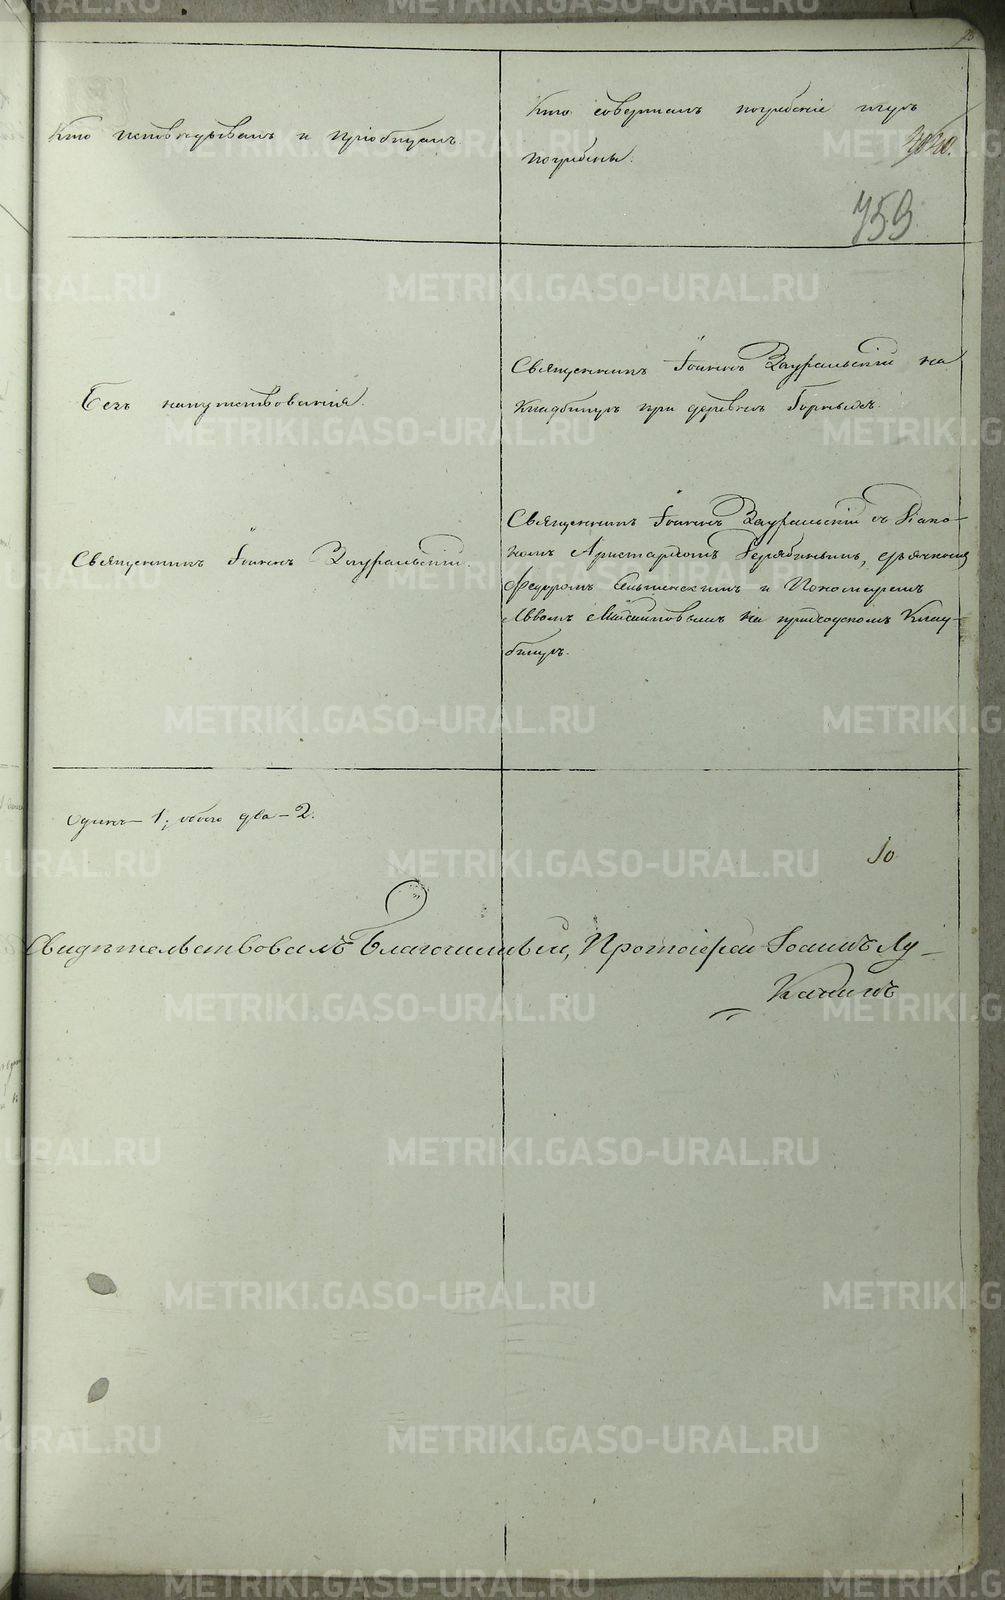 Кто исповѣдывалъ и пріобщалъ.
Кто совершалъ погребеніе и гдѣ
погребены.
759
Безъ напутствованія.
Священникъ Іоаннъ Зауральскій на
кладбищѣ при деревнѣ
Священникъ Іоаннъ Зауральскій.
Священникъ Іоаннъ Зауральскій съ Діако-
номъ Аристархомъ дьячкомъ
Федоромъ и Пономаремъ
на приходскомъ клад-
бищѣ.
Одинъ – 1; обоего два – 2.
10
Свидѣтельствовалъ Благочинный, Протоіерей Іоаннъ Лу-
канинъ
METRIKI.GASO-URAL.RU